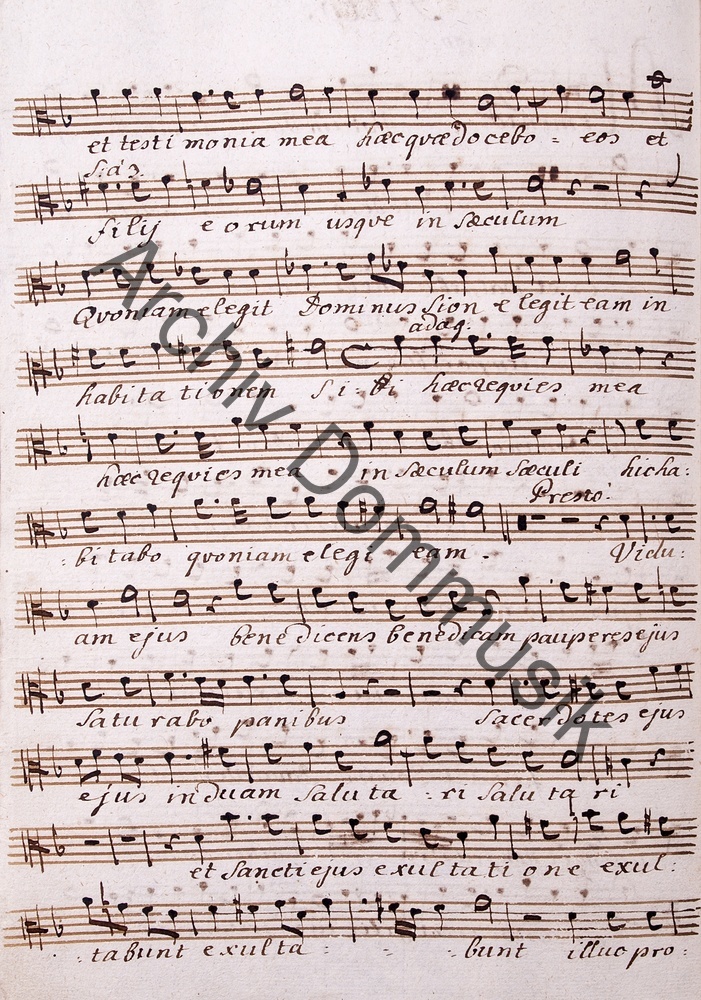 et testi monia mea hæc quæ docebo = eos et
S: à 3.
filij eorum usque in sæculum
Qvoniam elegit Dominus Sion elegit eam in
adag:
habitationem si: bi hæc reqvies mea
hæc reqvies mea in sæculum sæculi hic ha:
Presto:
: bi tabo qvoniam elegi eam.
Vidu:
am ejus benedicens benedicam pauperes ejus
saturabo panibus sacerdotes ejus
ejus induam saluta : ri saluta ri
et sancti ejus exultatione exul:
: tabunt exulta : : : bunt illuc pro:
Archiv Dommusik